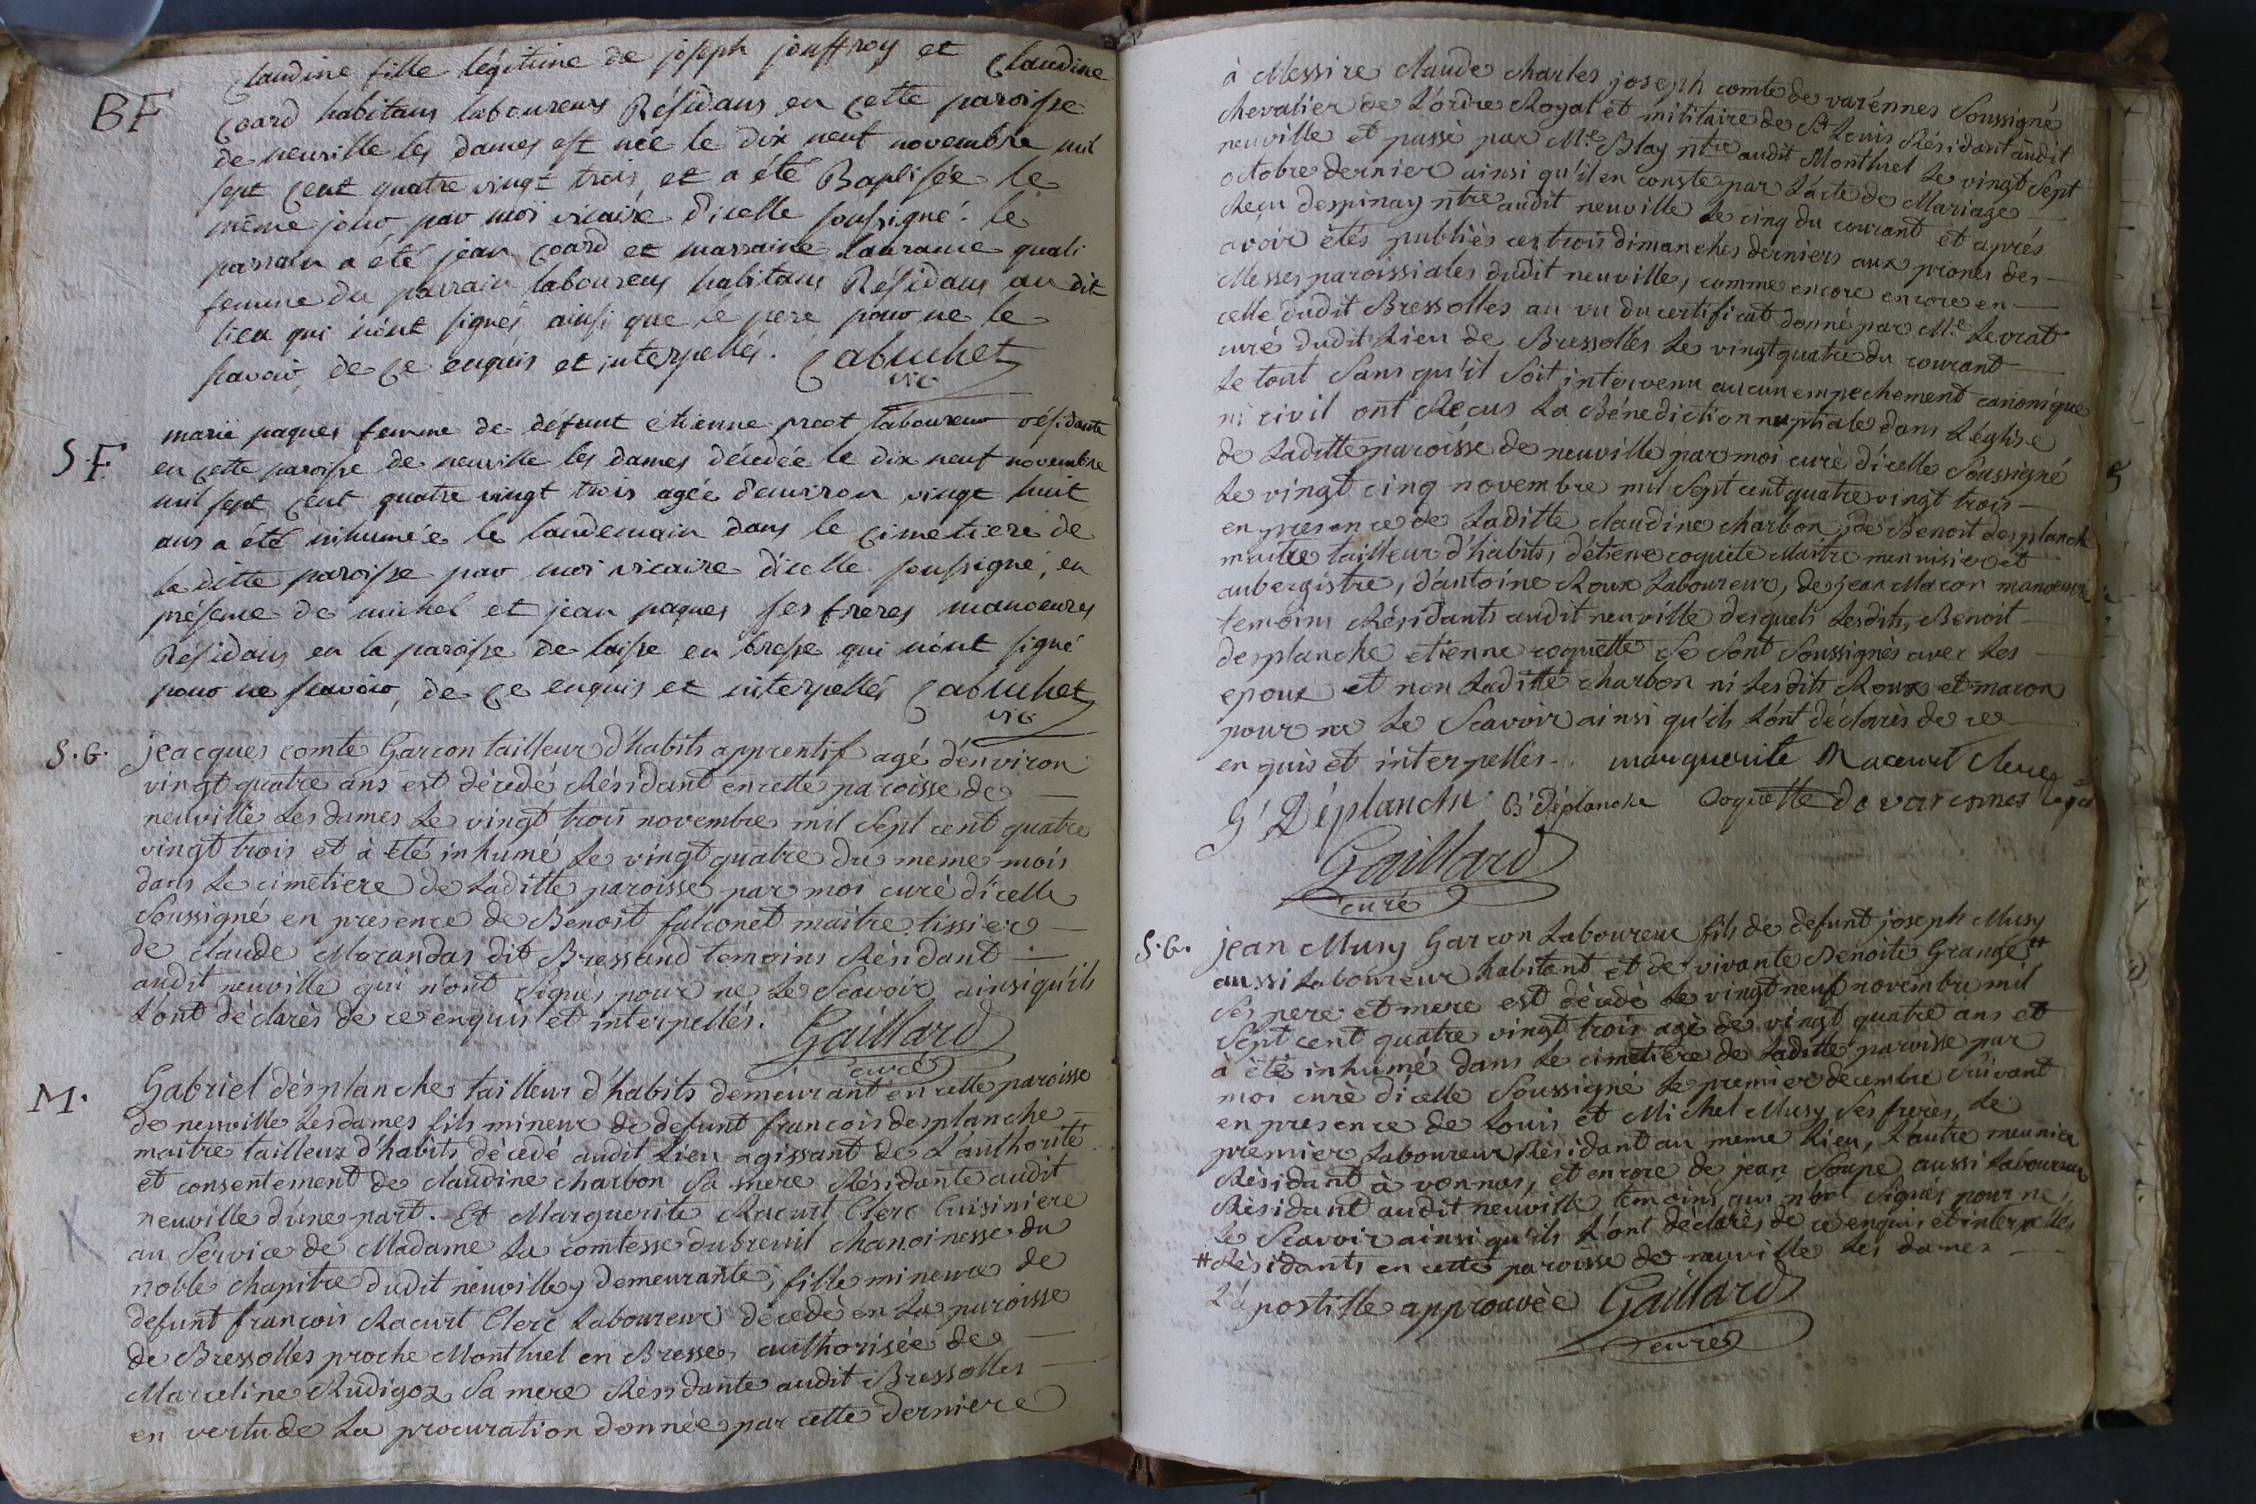 BF
Claudine fille légitime de joseph jouffroy et Claudine
Coard habitans laboureurs Résidans en Cette paroisse
de neuville les dames est née le dix neuf novembre mil
sept Cent quatre vingt trois, et a été Baptisée le
même jour par moi vicaire d'icelle soussigné. le
parrain a été jean Coard et marraine laurance quali
femme du parrain laboureurs habitans Résidans au dit
lieu qui n'ont signés ainsi que le pere pour ne le
scavoir, de Ce enquis et interpellés. Cabuchet
vic
S.F.
marie paques femme de défunt étienne preot laboureur résidante
en cette paroisse de neuville les dames décédée le dix neuf novembre
mil sept Cent quatre vingt trois agée d'environ vingt huit
ans a été inhumée le landemain dans le Cimetiere de
la ditte paroisse par moi vicaire d'icelle soussigné, en
présence de michel et jean paques ses freres manoeuvres
Résidans en la paroisse de laisse en bresse qui n'ont signé
pour ne scavoir, de Ce enquis et interpellés Cabuchet
vic
S.G.
jeacques comte Garcon tailleur d'habits apprentif agé d'environ
vingt quatre ans est décedé Résidant en cette paroisse de
neuville Les dames Le vingt trois novembre mil Sept cent quatre
vingt trois et à été inhumé Le vingt quatre du meme mois
dans Le cimetiere de Laditte paroisse par moi curé d'icelle
Soussigné en presence de Benoit falconet maitre tissier
de Claude Morandas dit Bressand temoins Résidant
audit neuville qui n'ont Signés pour ne Le Scavoir ainsi qu'ils
L'ont déclarès de ce enquis et interpellés. Gaillard
curé
M.
Gabriel désplanche tailleur d'habits demeurant en cette paroisse
de neuville Les dames fils mineur de defunt francois desplanche
maitre tailleur d'habits décedé audit Lieu agissant de L'authorité
et consentement de claudine charbon Sa mere Résidante audit
neuville d'une part. Et Marguerite Racurt Clerc Cuisiniere
au Service de Madame La comtesse dubreuil chanoinesse du
noble chapitre dudit neuville y demeurante, fille mineure de
defunt francois Racurt Clerc Laboureur décedé en La paroisse
de Bressolles proche Montluel en Bresse, authorisée de
Marceline Rudigoz Sa mere Résidante audit Bressolles
en vertu de La procuration donnée par cette derniere
à Messire claude charles joseph comte de varénnes Soussigné
chevalier de L'ordre Royal et militaire de St Louis Résidant audit
neuville et passé par Me Blay ntre audit Montluel Le vingt Sept
octobre dernier ainsi qu'il en conste par L'acte de Mariage
Reçu despinay ntre audit neuville Le cinq du courant et aprés
avoir étés publiés ces trois dimanches derniers aux prones des
Messes paroissiales dudit neuville, comme encore encore en
celle dudit Bressolles au vu du certificat donné par Me Levrat
curé dudit Lieu de Bressolles Le vingt quatre du courant
Le tout Sans qu'il Soit intervenu aucun empechement canonique
ni civil ont Reçus La Bénediction nuptiale dans L'église
de Laditte paroisse de neuville par moi curé d'icelle Soussigné
Le vingt cinq novembre mil Sept cent quatre vingt trois
en presence de Laditte claudine charbon, de Benoit desplanche
maitre tailleur d'habits, d'étiene coquete Maitre mennisier et
aubergistre, d'antoine Roux Laboureur, de jean Macon manoeuvre
temoins Résidants audit neuville desquels Lesdits, Benoit
desplanche etienne coquette Se Sont Soussignés avec Les
epoux et non Laditte charbon ni Lesdits Roux et macon
pour ne Le Scavoir ainsi qu'ils L'ont déclarés de ce
enquis et interpellés. marguerite Raceurt Clerc
G' Déplanche B' déplanche Coquette de varennes
Gaillard
curé
S.G.
jean Musy Garcon Laboureur fils de defunt joseph Musy
aussi Laboureur habitant et de vivante Benoite Grange #
Ses pere et mere est décedé Le vingt neuf novembre mil
Sept cent quatre vingt trois agé de vingt quatre ans et
à été inhumé dans Le cimetiere de Laditte paroisse par
moi curé d'icelle Soussigné Le premier décembre Suivant
en presence de Louis et Michel Musy, Ses freres, Le
premier Laboureur Résidant au meme Lieu, L'autre meunier
Résidant à vonnas, et encore de jean Soupe aussi Laboureur
Résidant audit neuville temoins qui n'ont Signés pour ne
Le Scavoir ainsi qu'ils L'ont déclarés de ce enquis et interpellés
# Résidants en cette paroisse de neuville Les dames
L'apostille approuvée Gaillard
curé